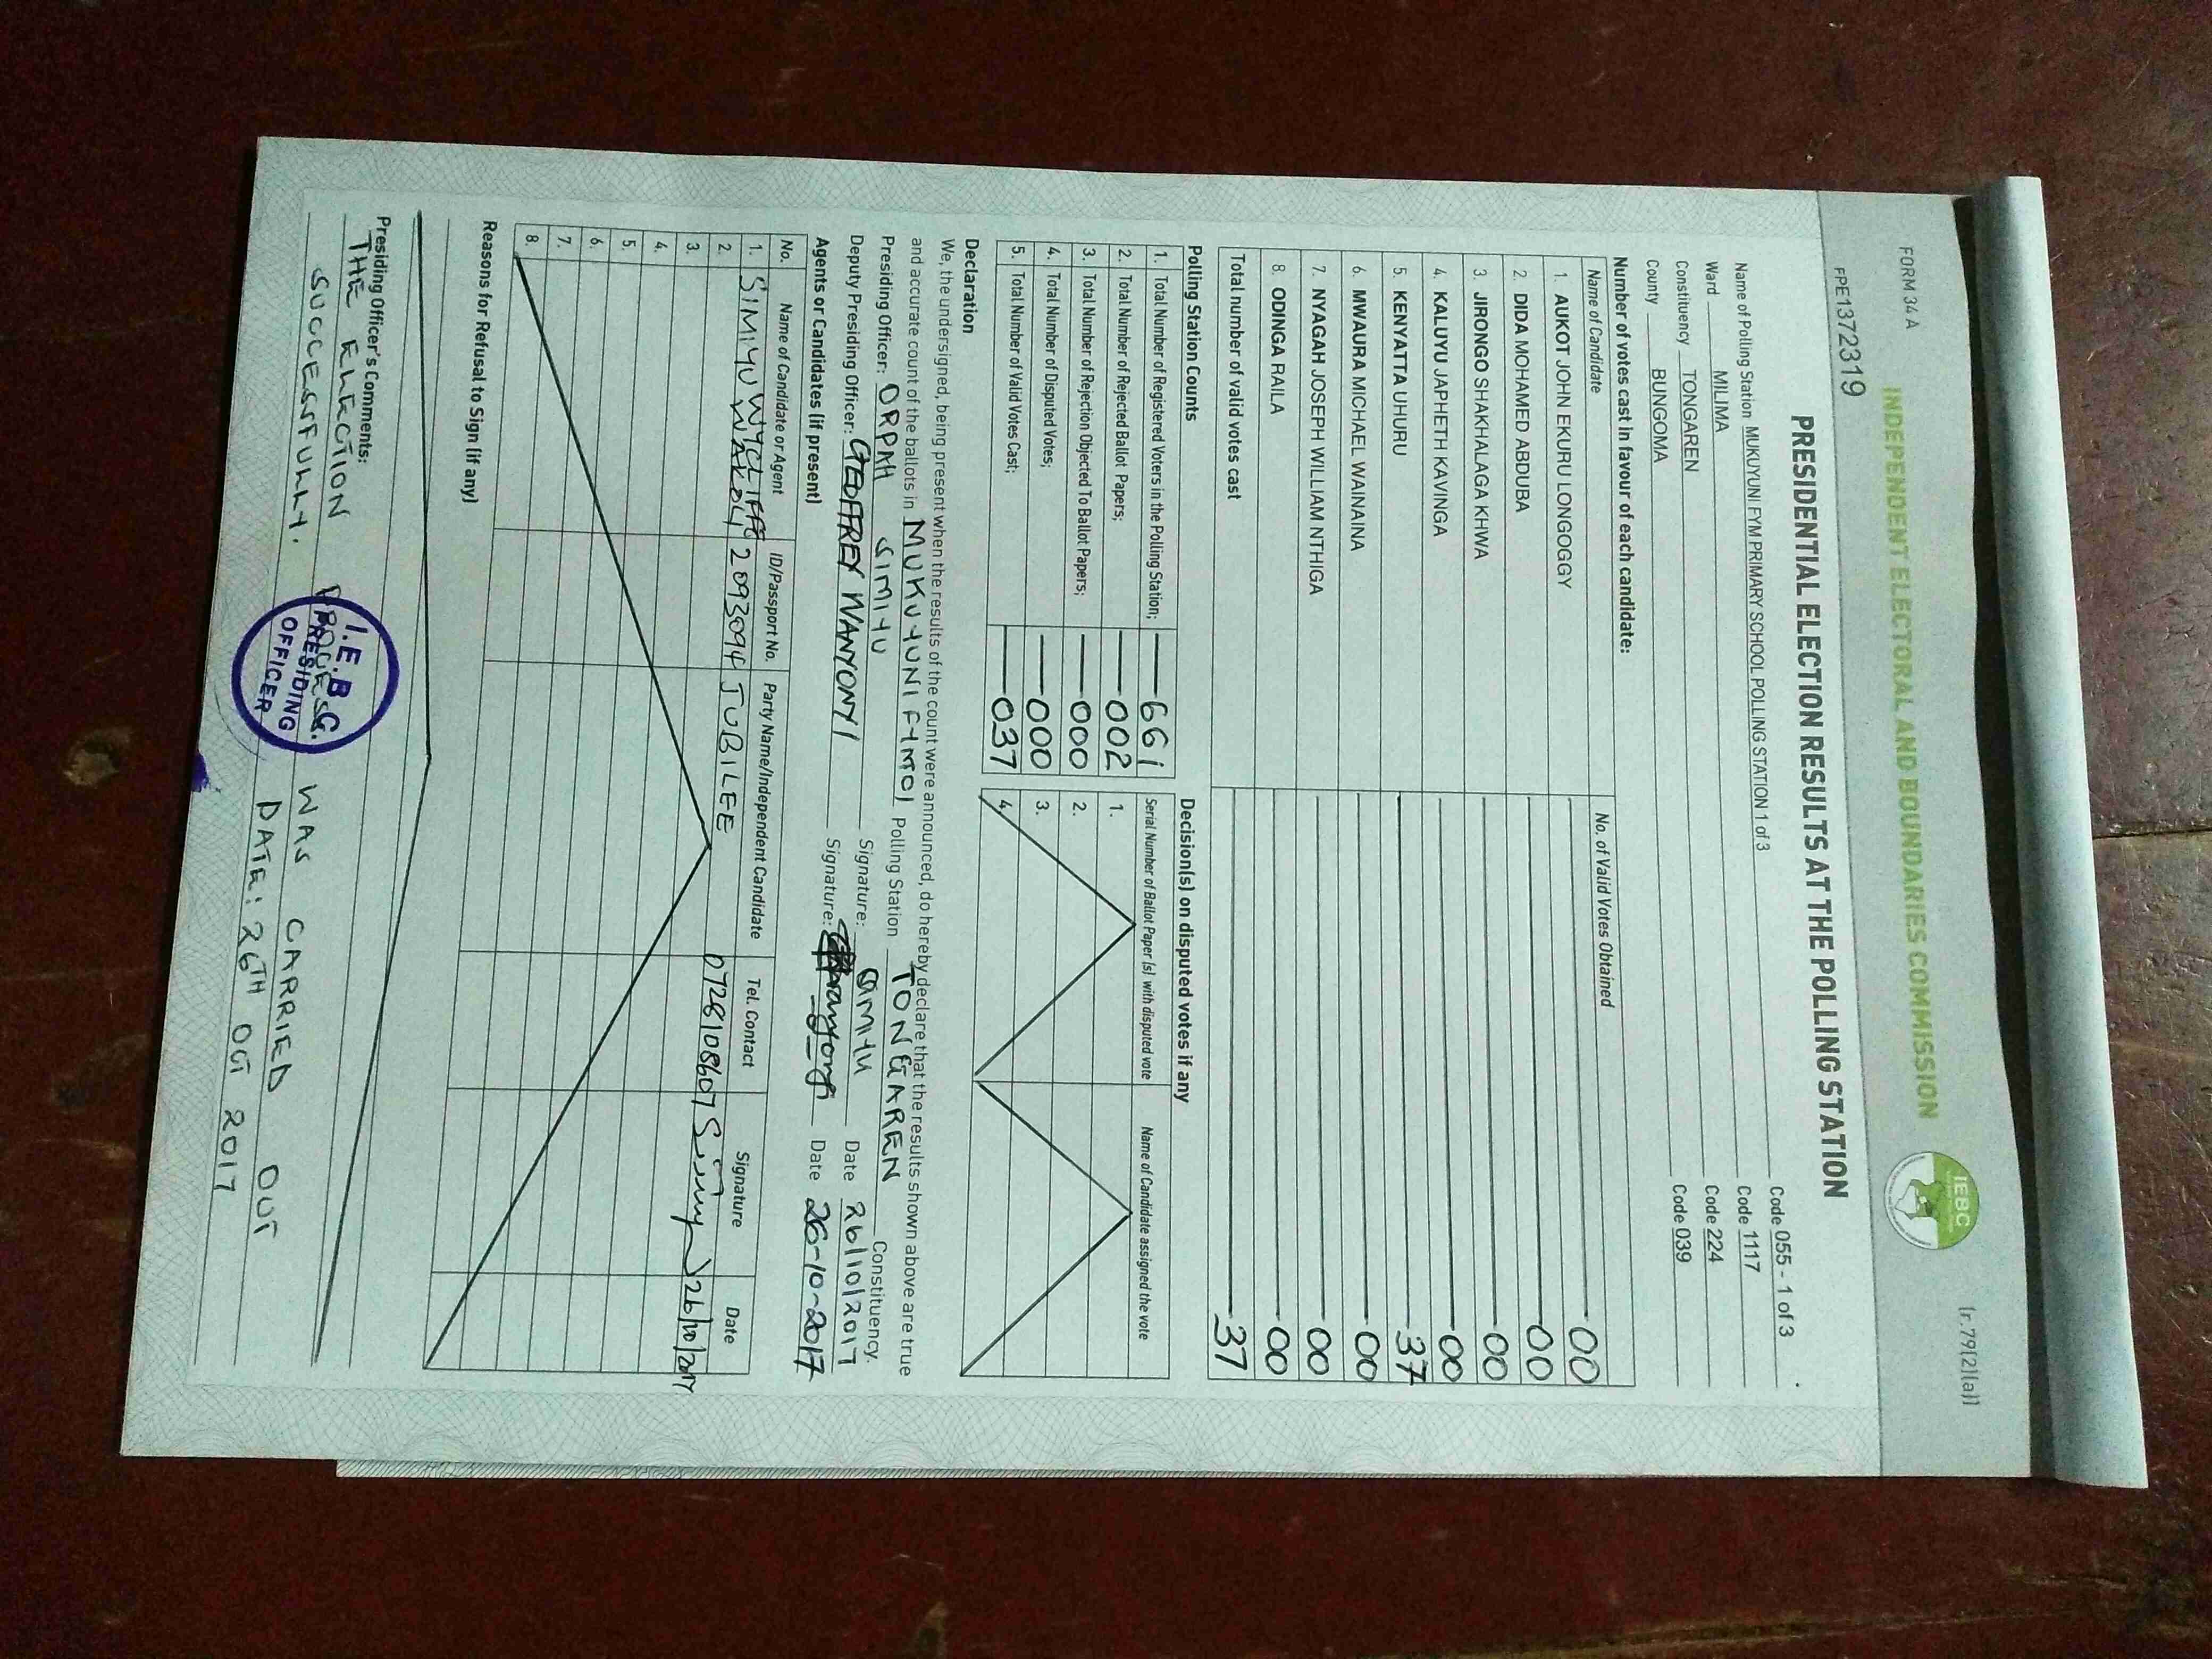 FORM 34 A
[r.79(2)(a)]
INDEPENDENT ELECTORAL AND BOUNDARIES COMMISSION
IEBC
FPE1372319
PRESIDENTIAL ELECTION RESULTS AT THE POLLING STATION
Name of Polling Station MUKUYUNI FYM PRIMARY SCHOOL POLLING STATION 1 of 3 Code 055 - 1 of 3
Ward MILIMA Code 1117
Constituency TONGAREN Code 224
County BUNGOMA Code 039
Number of votes cast in favour of each candidate:
Name of Candidate No. of Valid Votes Obtained
1. AUKOT JOHN EKURU LONGOGGY 00
2. DIDA MOHAMED ABDUBA 00
3. JIRONGO SHAKHALAGA KHWA 00
4. KALUYU JAPHETH KAVINGA 00
5. KENYATTA UHURU 37
6. MWAURA MICHAEL WAINAINA 00
7. NYAGAH JOSEPH WILLIAM NTHIGA 00
8. ODINGA RAILA 00
Total number of valid votes cast 37
Polling Station Counts
1. Total Number of Registered Voters in the Polling Station; 661
2. Total Number of Rejected Ballot Papers; 002
3. Total Number of Rejection Objected To Ballot Papers; 000
4. Total Number of Disputed Votes; 000
5. Total Number of Valid Votes Cast; 037
Decision(s) on disputed votes if any
Serial Number of Ballot Paper (s) with disputed vote Name of Candidate assigned the vote
1.
2.
3.
4.
Declaration
We, the undersigned, being present when the results of the count were announced, do hereby declare that the results shown above are true
and accurate count of the ballots in MUKUYUNI FYM 01 Polling Station TONGAREN Constituency.
Presiding Officer: ORPAH SIMIYU Signature: Date 26/10/2017
Deputy Presiding Officer: GEOFFREY WANYONYI Signature: Date 26-10-2017
Agents or Candidates (if present)
No. Name of Candidate or Agent ID/Passport No. Party Name/Independent Candidate Tel. Contact Signature Date
1. SIMIYU WYCLIFFE
2. 2093094 JUBILEE 0728108607 26/10/2017
3.
4.
5.
6.
7.
8.
Reasons for Refusal to Sign (if any)
Presiding Officer's Comments:
THE ELECTION PROCESS WAS CARRIED OUT
SUCCESSFULLY. DATE: 26TH OCT 2017
I.E.B.C.
PRESIDING
OFFICER